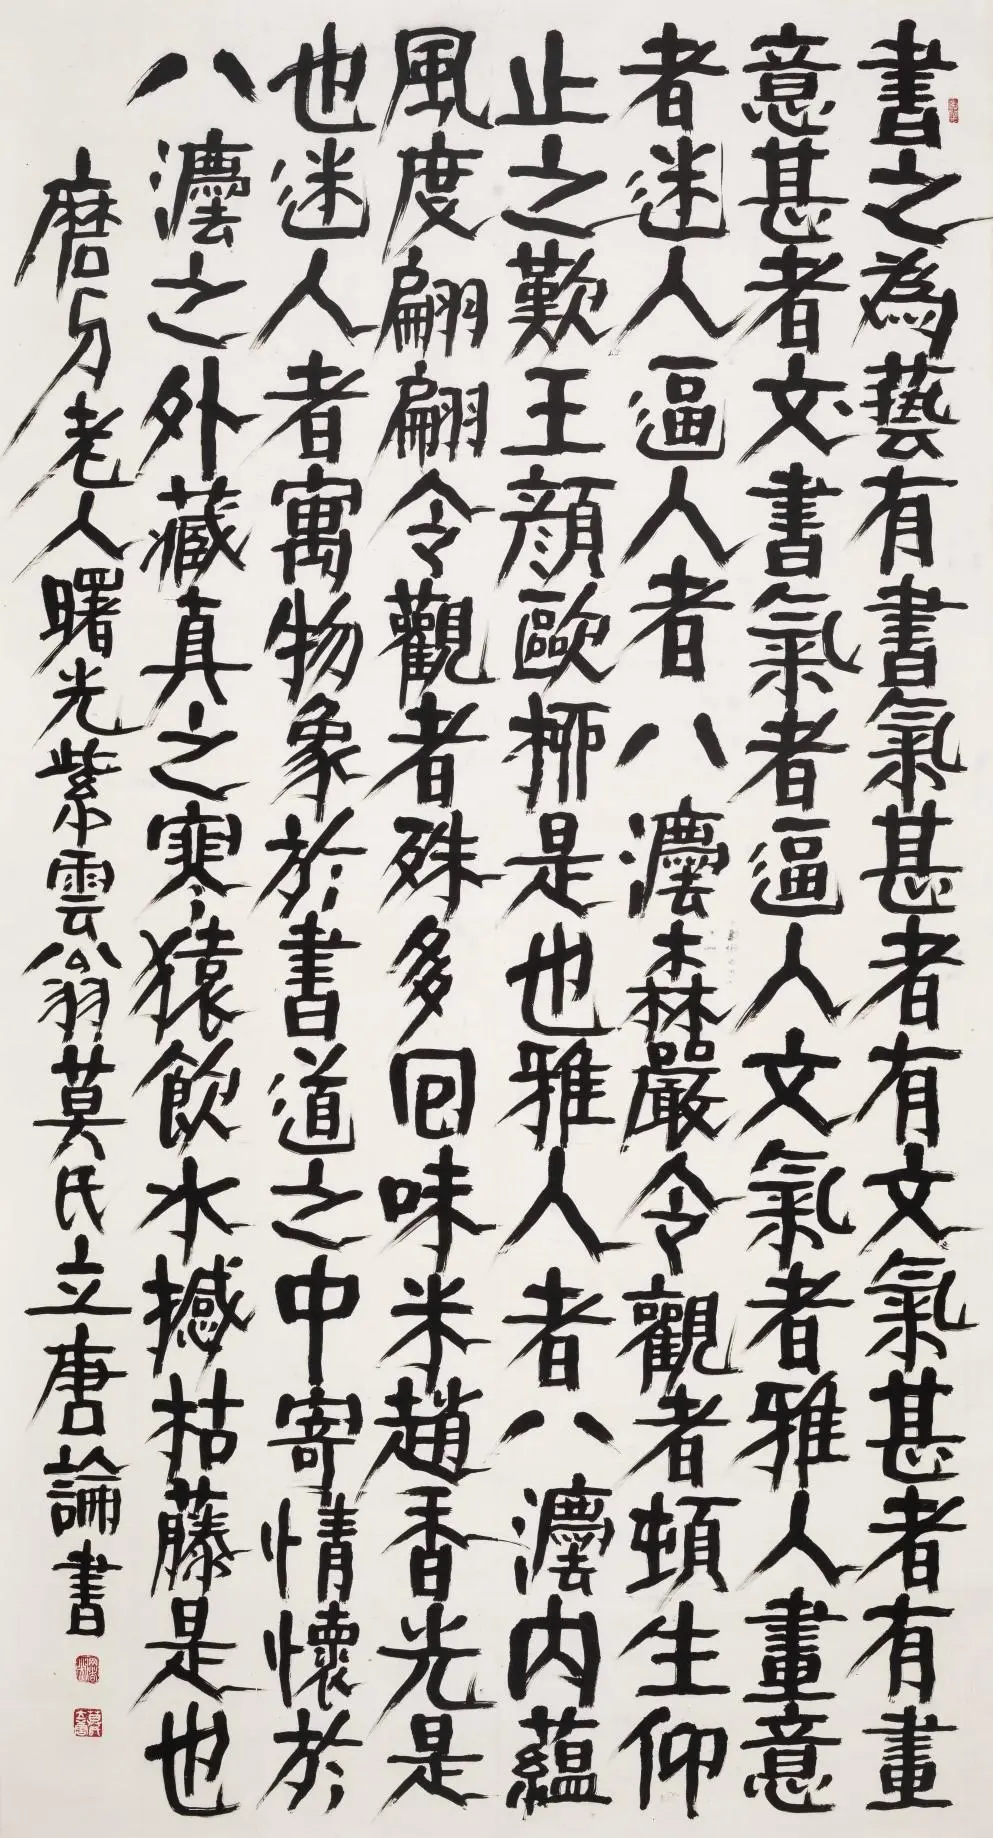 書之為藝有書氣甚者有文氣甚者有畫
意甚者文書氣者逼人文氣者雅人畫意
者迷人逼人者八灋森嚴令觀者頓生仰
止之歎王顏歐柳是也雅人者八灋內蘊
風度翩翩令觀者殊多回味米趙香光是
也迷人者寓物象於書道之中寄情懷於
八灋之外藏真之寒猿飲水撼枯藤是也
磨老人曙光紫雲翁莫氏立唐論書